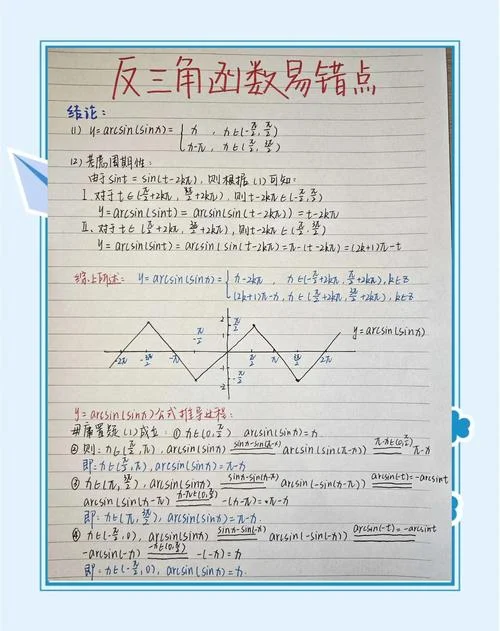 反三角函数易错点
结论:
(1) y=arcsin(sinx)={ x , x∈(-π/2, π/2)
x-π, x∈(π/2, 3π/2)
(2) 考虑周期性:
由于sint=sin(t-2kπ), 则根据(1)可知:
I. 对于t∈(π/2+2kπ, 3π/2+2kπ), 则t-2kπ∈(-π/2, π/2)
y=arcsin(sint)=arcsin(sin(t-2kπ))=t-2kπ
II. 对于t∈(π/2+2kπ, 3π/2+2kπ), 则t-2kπ∈(π/2, 3π/2)
y=arcsin(sint)=arcsin(sin(t-2kπ))=π-(t-2kπ)=(2k+1)π-t
综上所述: y=arcsin(sinx)={ x-2kπ, x∈(-π/2+2kπ, π/2+2kπ), k∈Z
(2k+1)π-x, x∈(π/2+2kπ, 3π/2+2kπ), k∈Z
2 π/2 y=arcsin(sinx)
-2π -3π/2 -π -π/2 π/2 π 3π/2 2π
-2 -π/2
y=arcsin(sinx)公式推导过程:
(1)成立: ① x∈(0, π/2) arcsin(sinx)=x
② 则: x∈(π/2, π), arcsin(sinx) sinx=sin(π-x) arcsin(sin(π-x)) π-x∈(0, π/2) π-x
即: x∈(π/2, π), arcsin(sinx)=π-x
③ x∈(π, 3π/2), arcsin(sinx) sinx=-sin(x-π) arcsin(-sin(x-π)) arcsin(-t)=-arcsint
-arcsin(sin(x-π)) x-π∈(0, π/2) -(x-π)=π-x
即: x∈(π, 3π/2), arcsin(sinx)=π-x.
④ x∈(-π/2, 0), arcsin(sinx) sinx=-sin(-x) arcsin(-sin(-x)) arcsin(-t)=-arcsint
-arcsin(-x) -x∈(0, π/2) -(-x)=x
即: x∈(-π/2, 0), arcsin(sinx)=x.